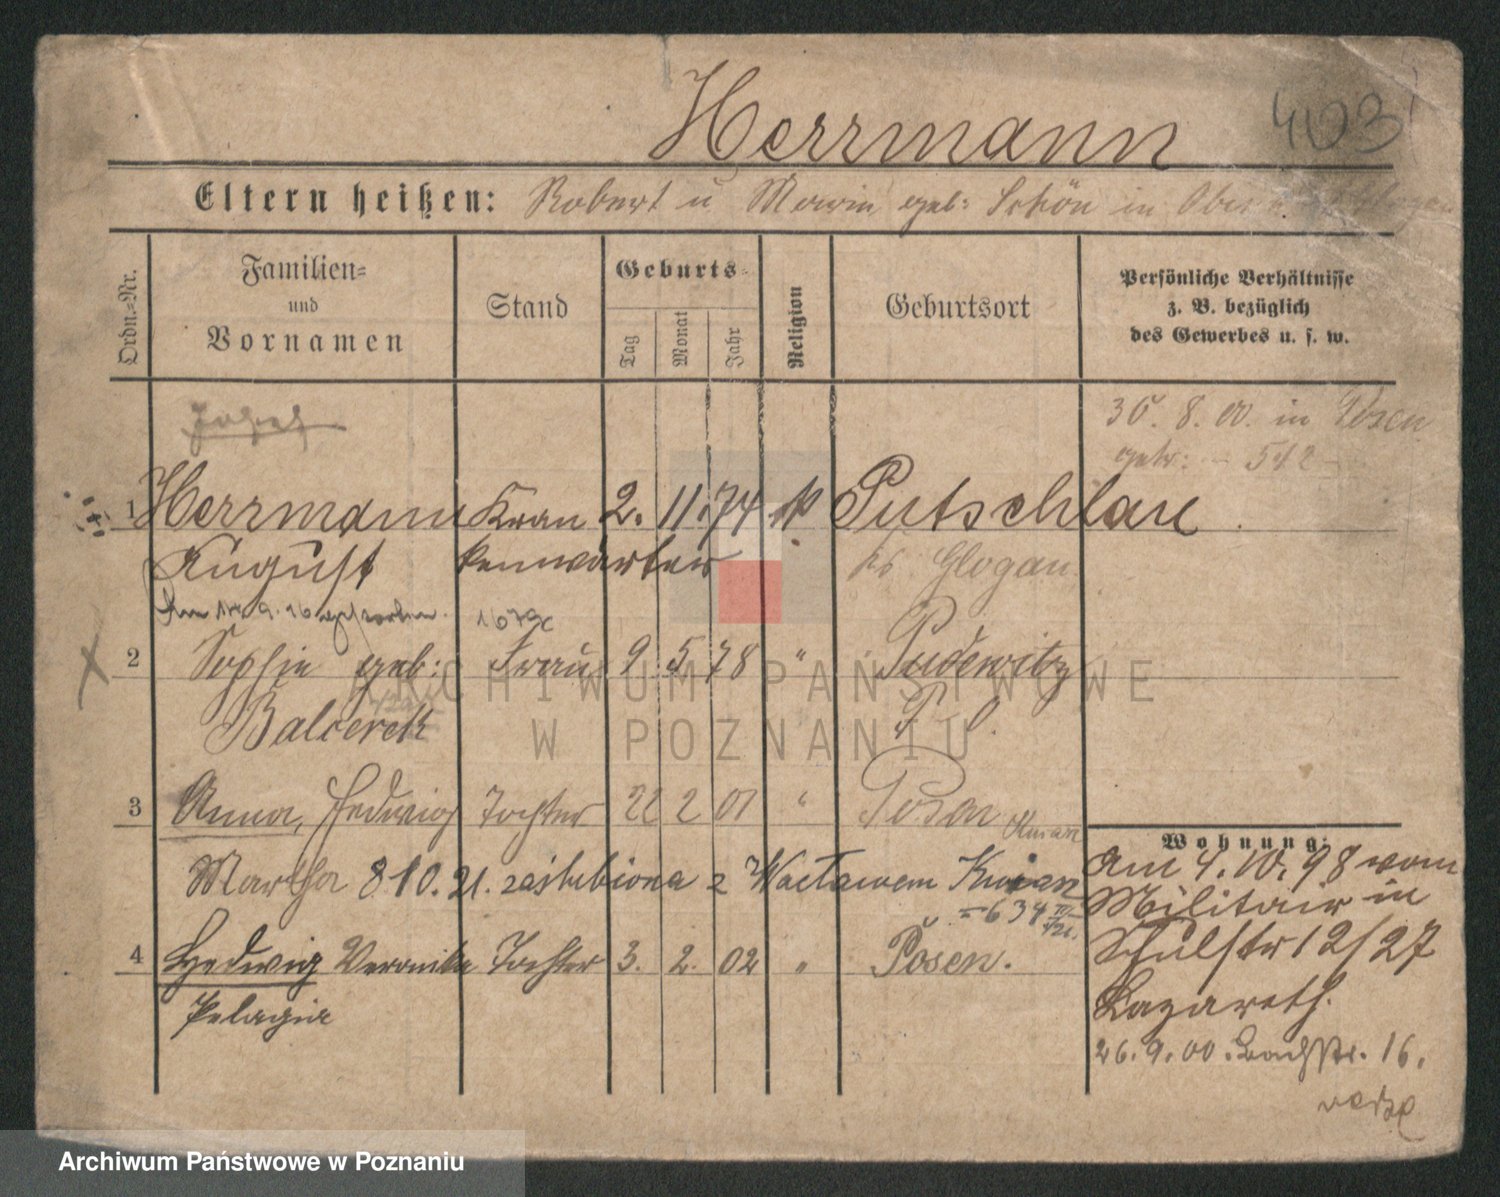 Herrmann
403
Eltern heißen: Robert u Marie geb: Schön in Ober Glogau
Ordn.=Nr.
Familien=
und
Vornamen
Stand
Geburts=
Tag
Monat
Jahr
Religion
Geburtsort
Persönliche Verhältnisse
z. B. bezüglich
des Gewerbes u. s. w.
Josef
30. 8. 00. in Posen
getr: - 542
1 Herrmann Kran 2. 11. 74 k Putschlau
August kenwärter ks Glogau
Am 14. 9. 16 gestorben. 1679c
2 Sophie geb: Frau 9 5 78 " Pudewitz
Balcerek P. S.
3 Anna, Hedwig Tochter 22 2 01 " Posen
Martha 8 10. 21. zaślubiona z Wacławem Kwian
= 634 III/21.
4 Hedwig Veronika Tochter 3. 2. 02 " Posen.
Pelagia
Wohnung:
Am 4. 10. 98 vom
Militair in
Schulstr 12/27
Lazareth.
26. 9. 00. Bachstr. 16.
ARCHIWUM PAŃSTWOWE
W POZNANIU
Archiwum Państwowe w Poznaniu